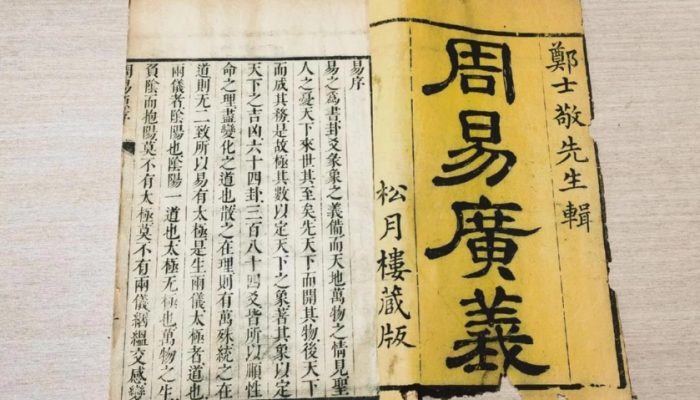 鄭士敬先生輯
周易廣義
松月樓藏版
易序
易之為書卦爻彖象之義備而天地萬物之情見聖
人之憂天下來世其至矣先天下而開其物後天下
而成其務是故極其數以定天下之象著其象以定
天下之吉凶六十四卦三百八十四爻皆所以順性
命之理盡變化之道也散之在理則有萬殊統之在
道則无二致所以易有太極是生兩儀太極者道也
兩儀者陰陽也陰陽一道也太極无極也萬物之生
負陰而抱陽莫不有太極莫不有兩儀絪縕交感變
周易序